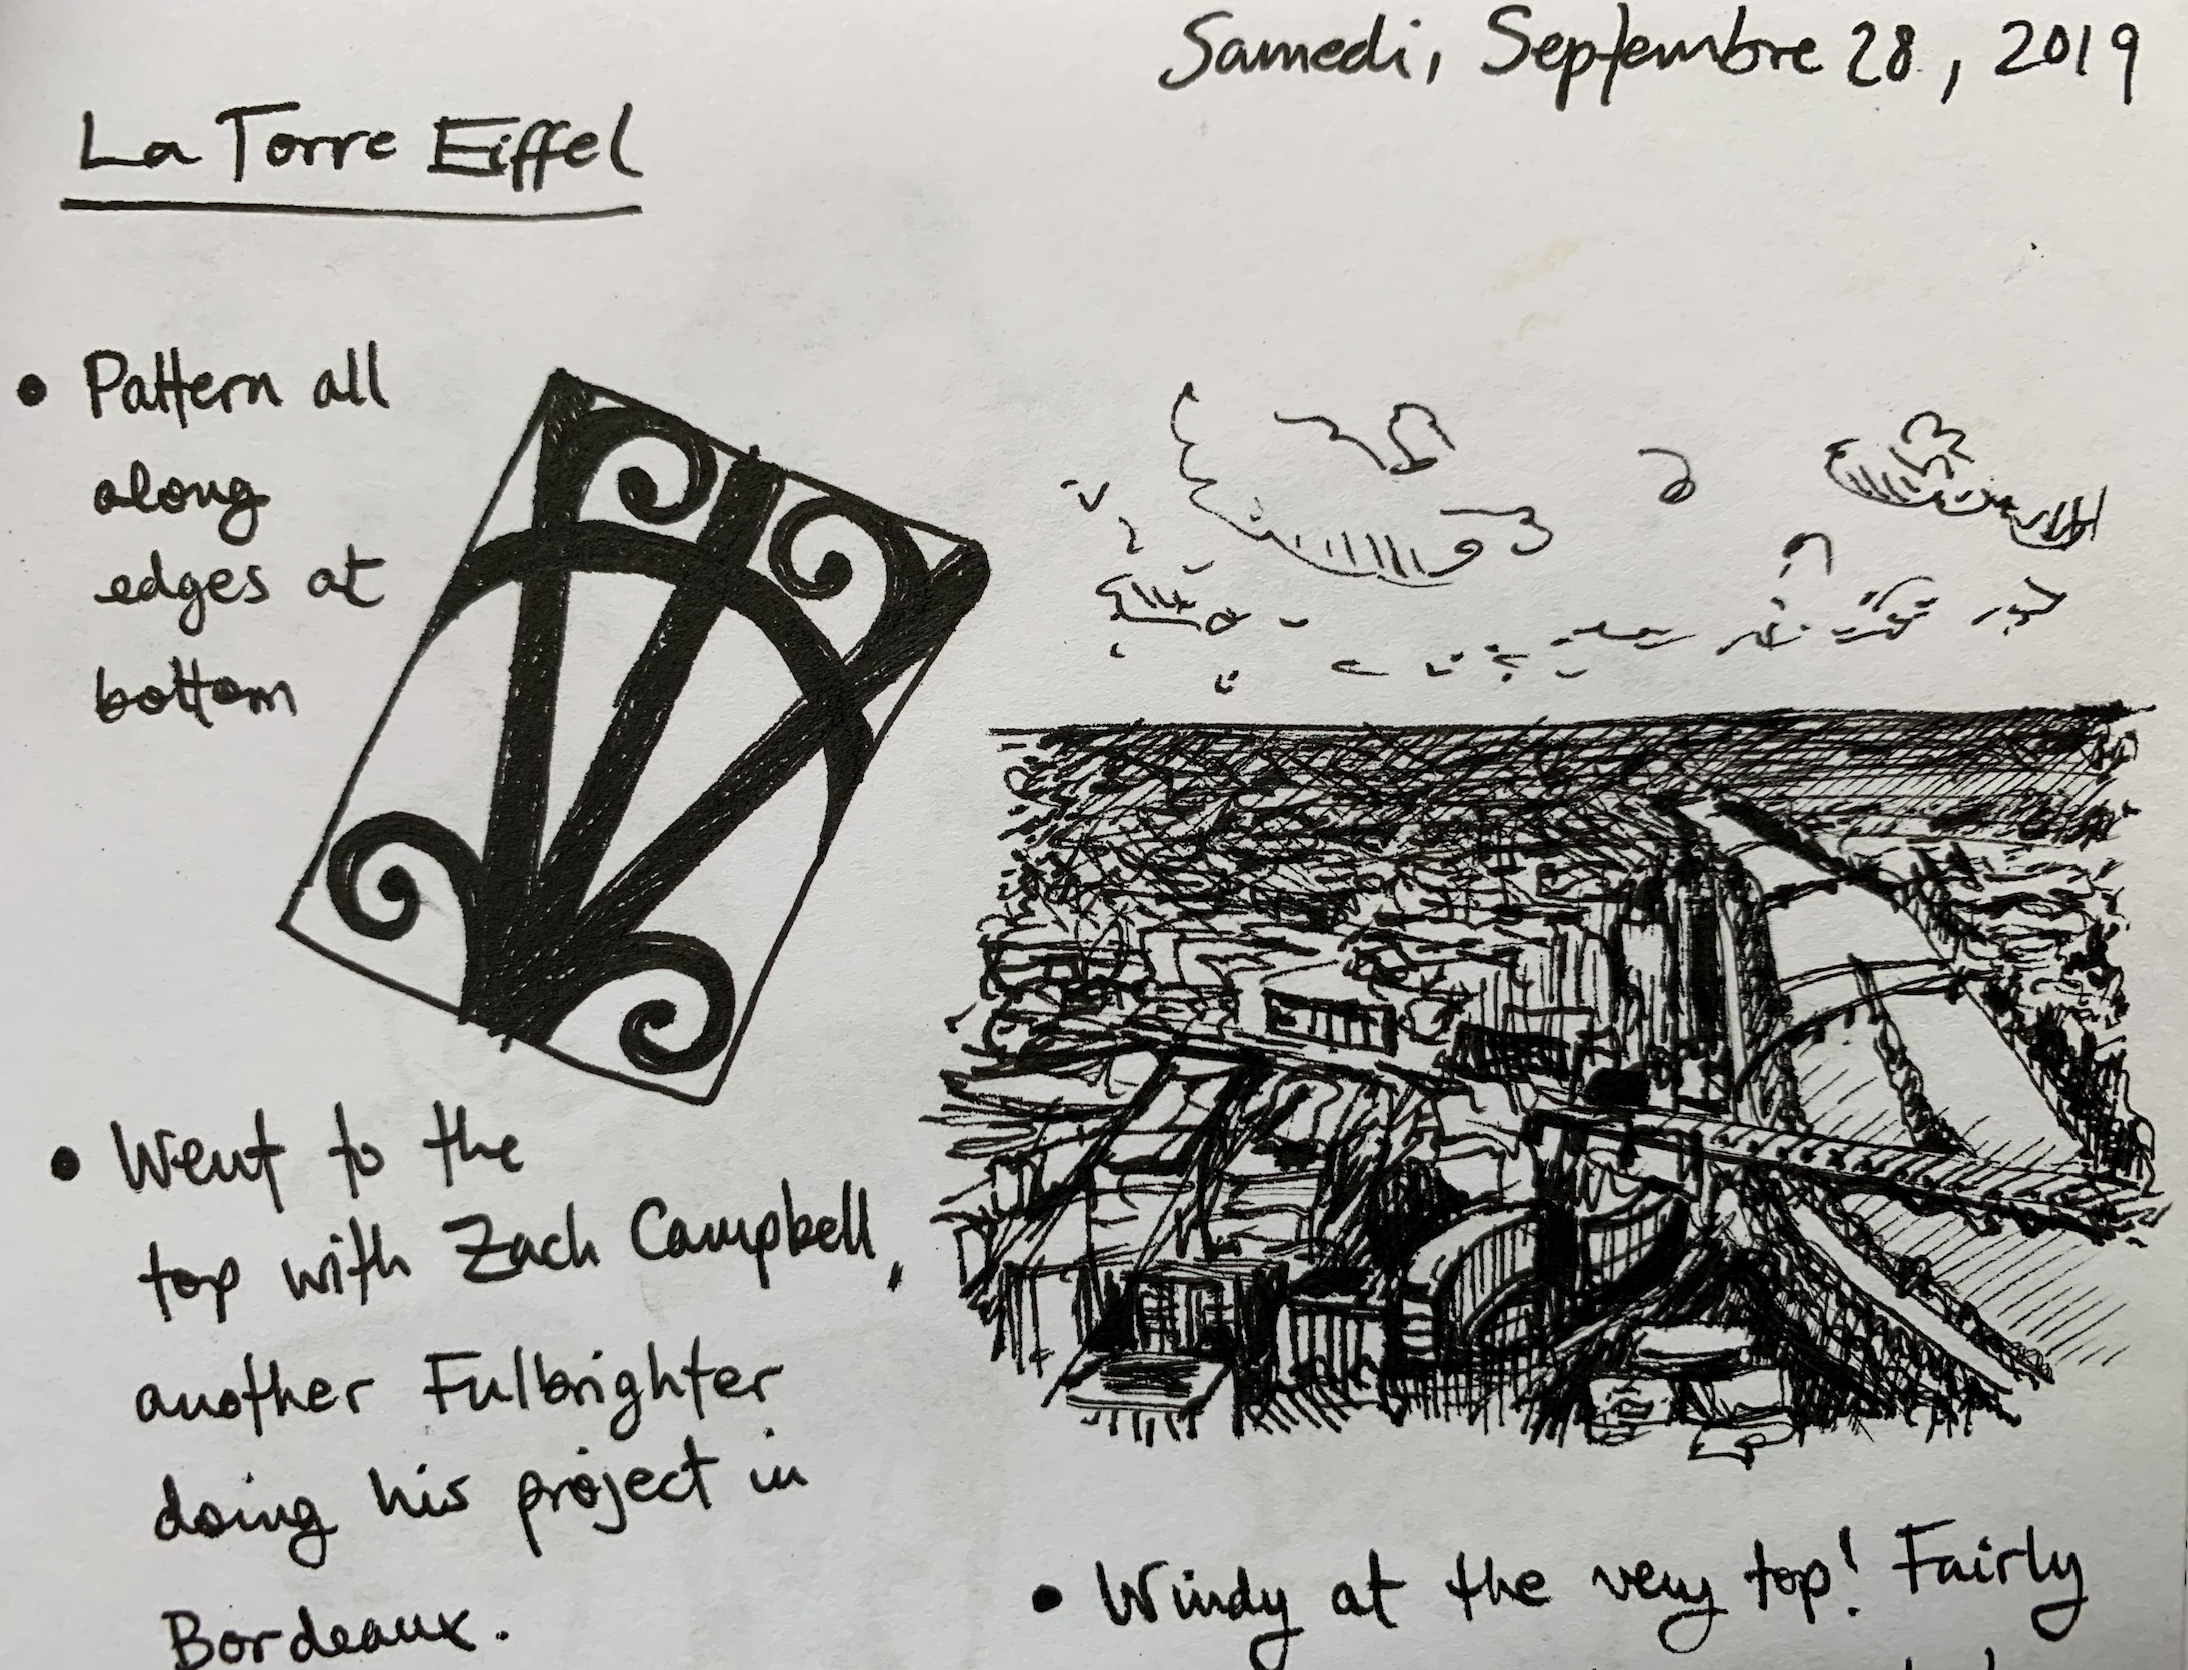 Samedi, Septembre 28, 2019
La Torre Eiffel
• Pattern all
along
edges at
bottom
• Went to the
top with Zach Campbell,
another Fulbrighter
doing his project in
Bordeaux.
• Windy at the very top! Fairly